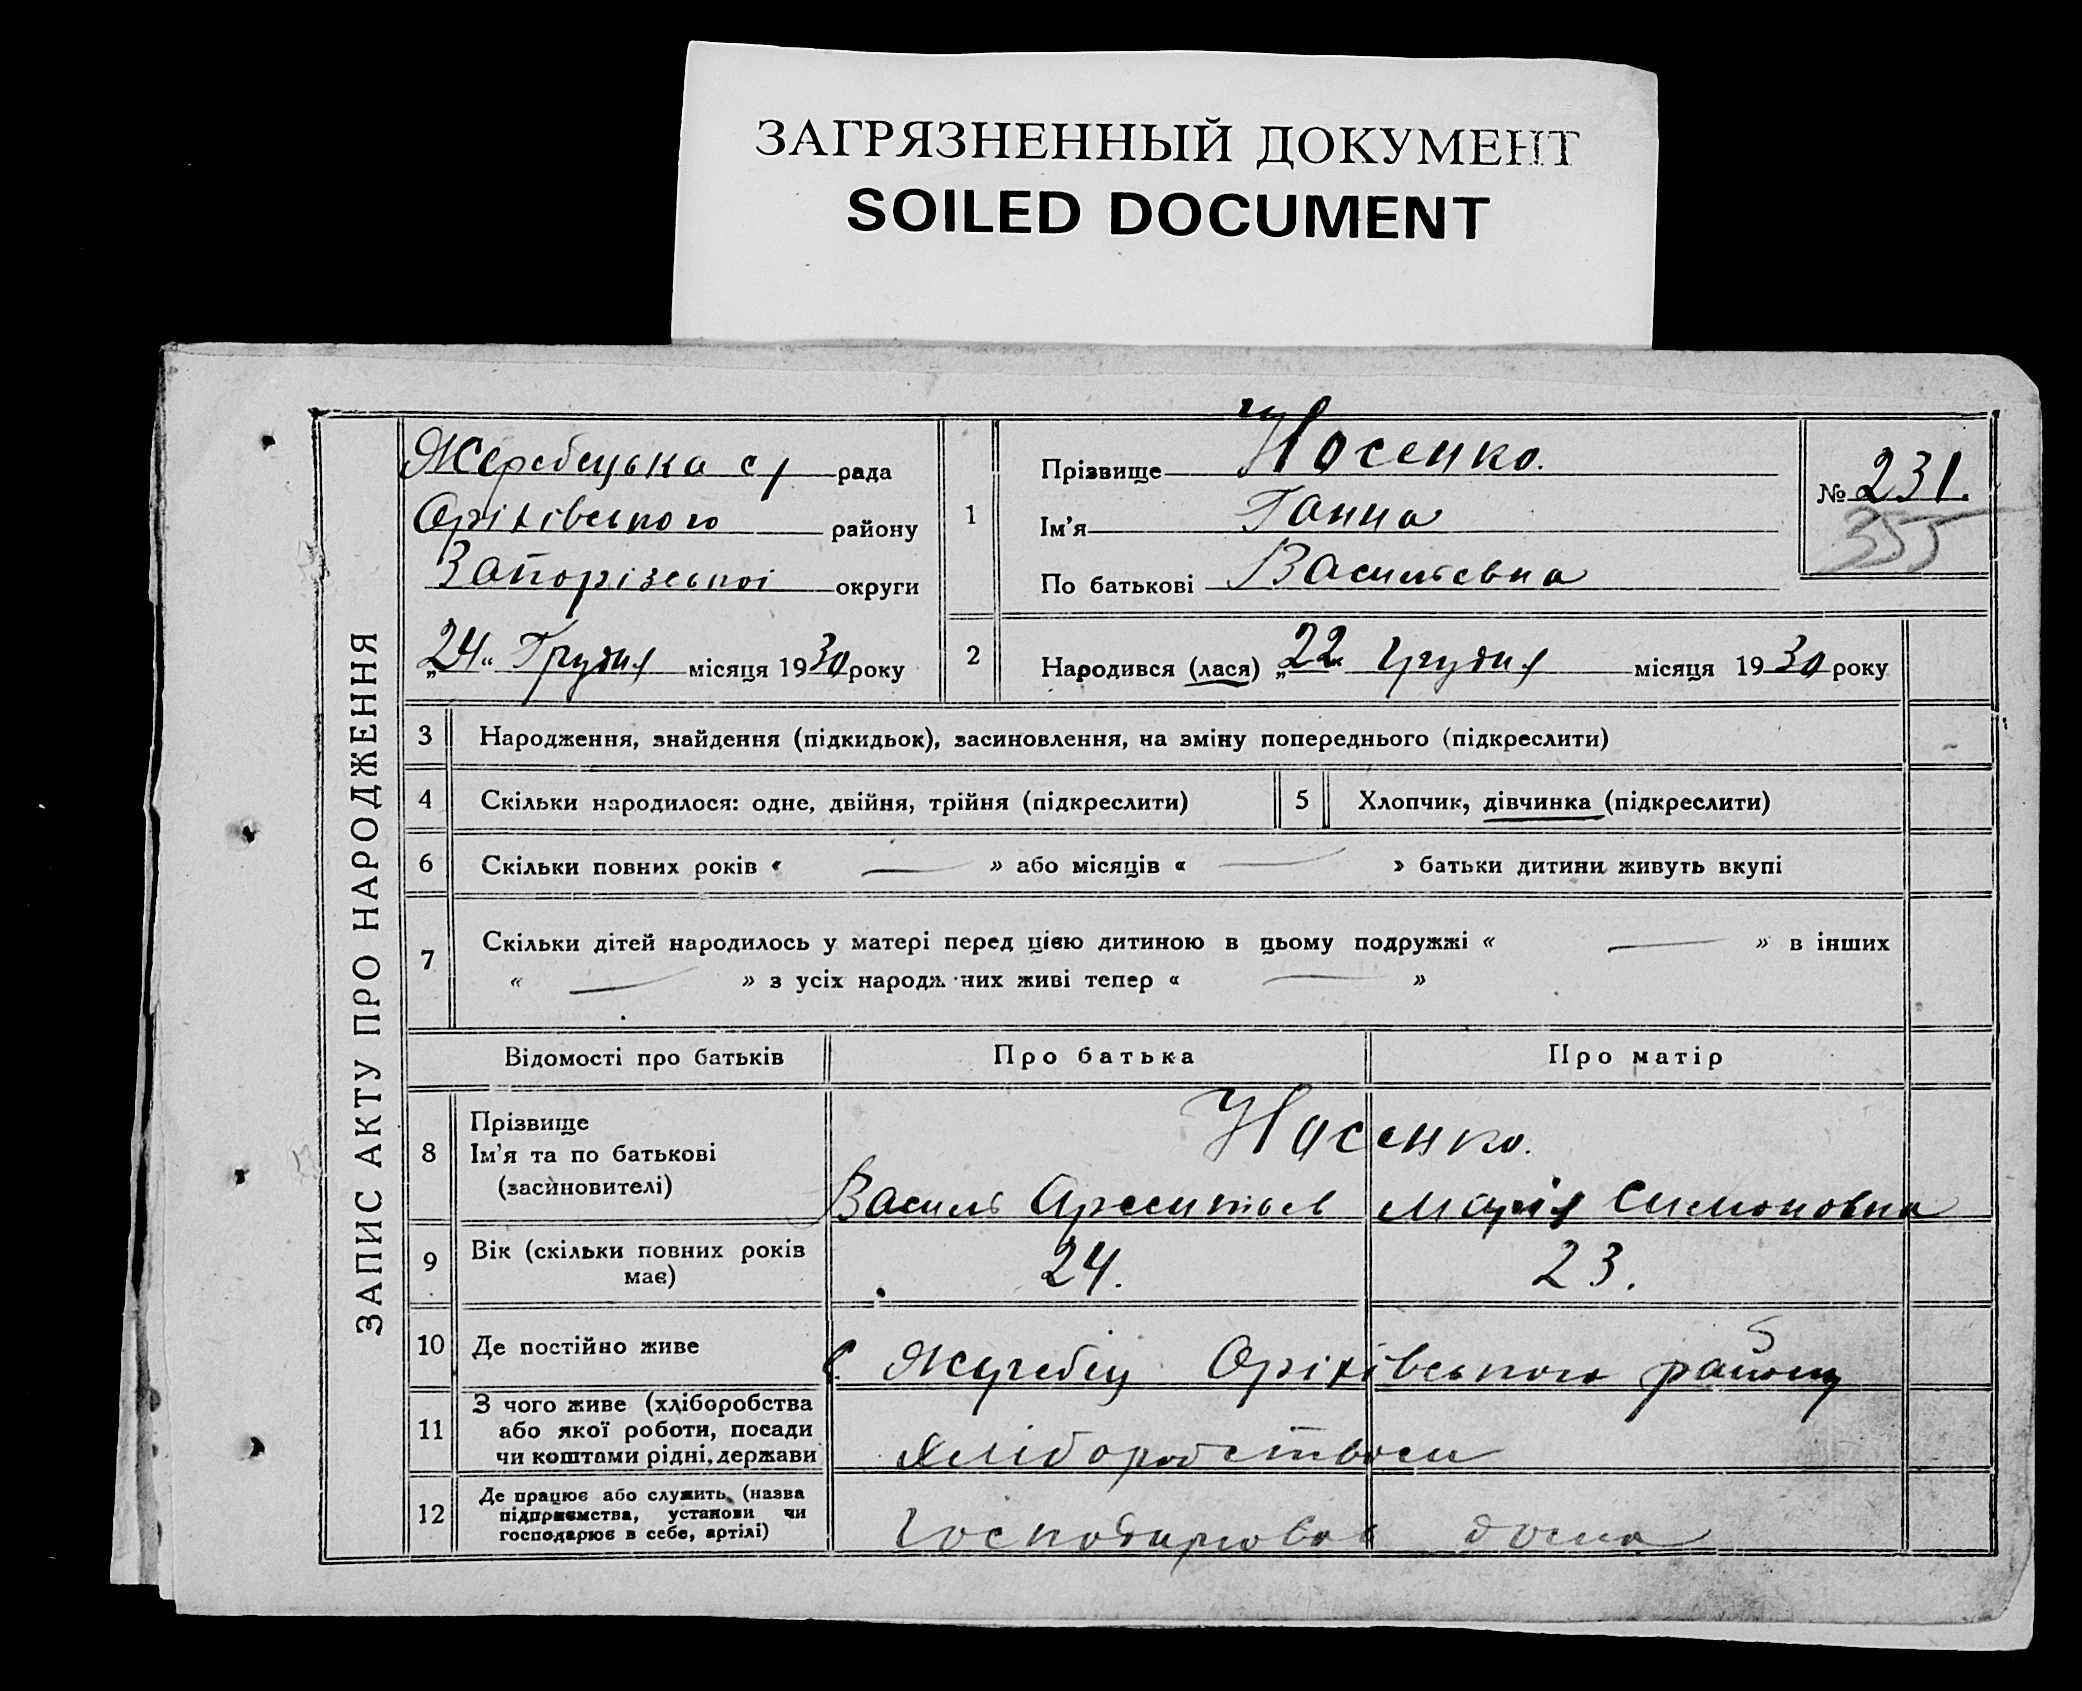 ЗАГРЯЗНЕННЫЙ ДОКУМЕНТ
SOILED DOCUMENT
ЗАПИС АКТУ ПРО НАРОДЖЕННЯ
Жеребецька с/ рада
Оріхівського району
Запорізької округи
„24“ Грудня місяця 1930 року
1
Прізвище Носенко.
Ім'я Ганна
По батькові Васильевна
№ 231.
355
2
Народився (лася) „22“ Грудня місяця 1930 року
3 Народження, знайдення (підкидьок), засиновлення, на зміну попереднього (підкреслити)
4 Скільки народилося: одне, двійня, трійня (підкреслити) 5 Хлопчик, дівчинка (підкреслити)
6 Скільки повних років « — » або місяців « — » батьки дитини живуть вкупі
7 Скільки дітей народилось у матері перед цією дитиною в цьому подружжі « — » в інших
« — » з усіх народж них живі тепер « — »
Відомості про батьків Про батька Про матір
8 Прізвище
Ім'я та по батькові
(засиновителі)
Носенко.
Василь Марія Симоновна
9 Вік (скільки повних років
має)
24. 23.
10 Де постійно живе
с. Жеребец Оріхівського району
11 З чого живе (хліборобства
або якої роботи, посади
чи коштами рідні, держави
хліборобством
12 Де працює або служить (назва
підприємства, установи чи
господарює в себе, артілі)
дома